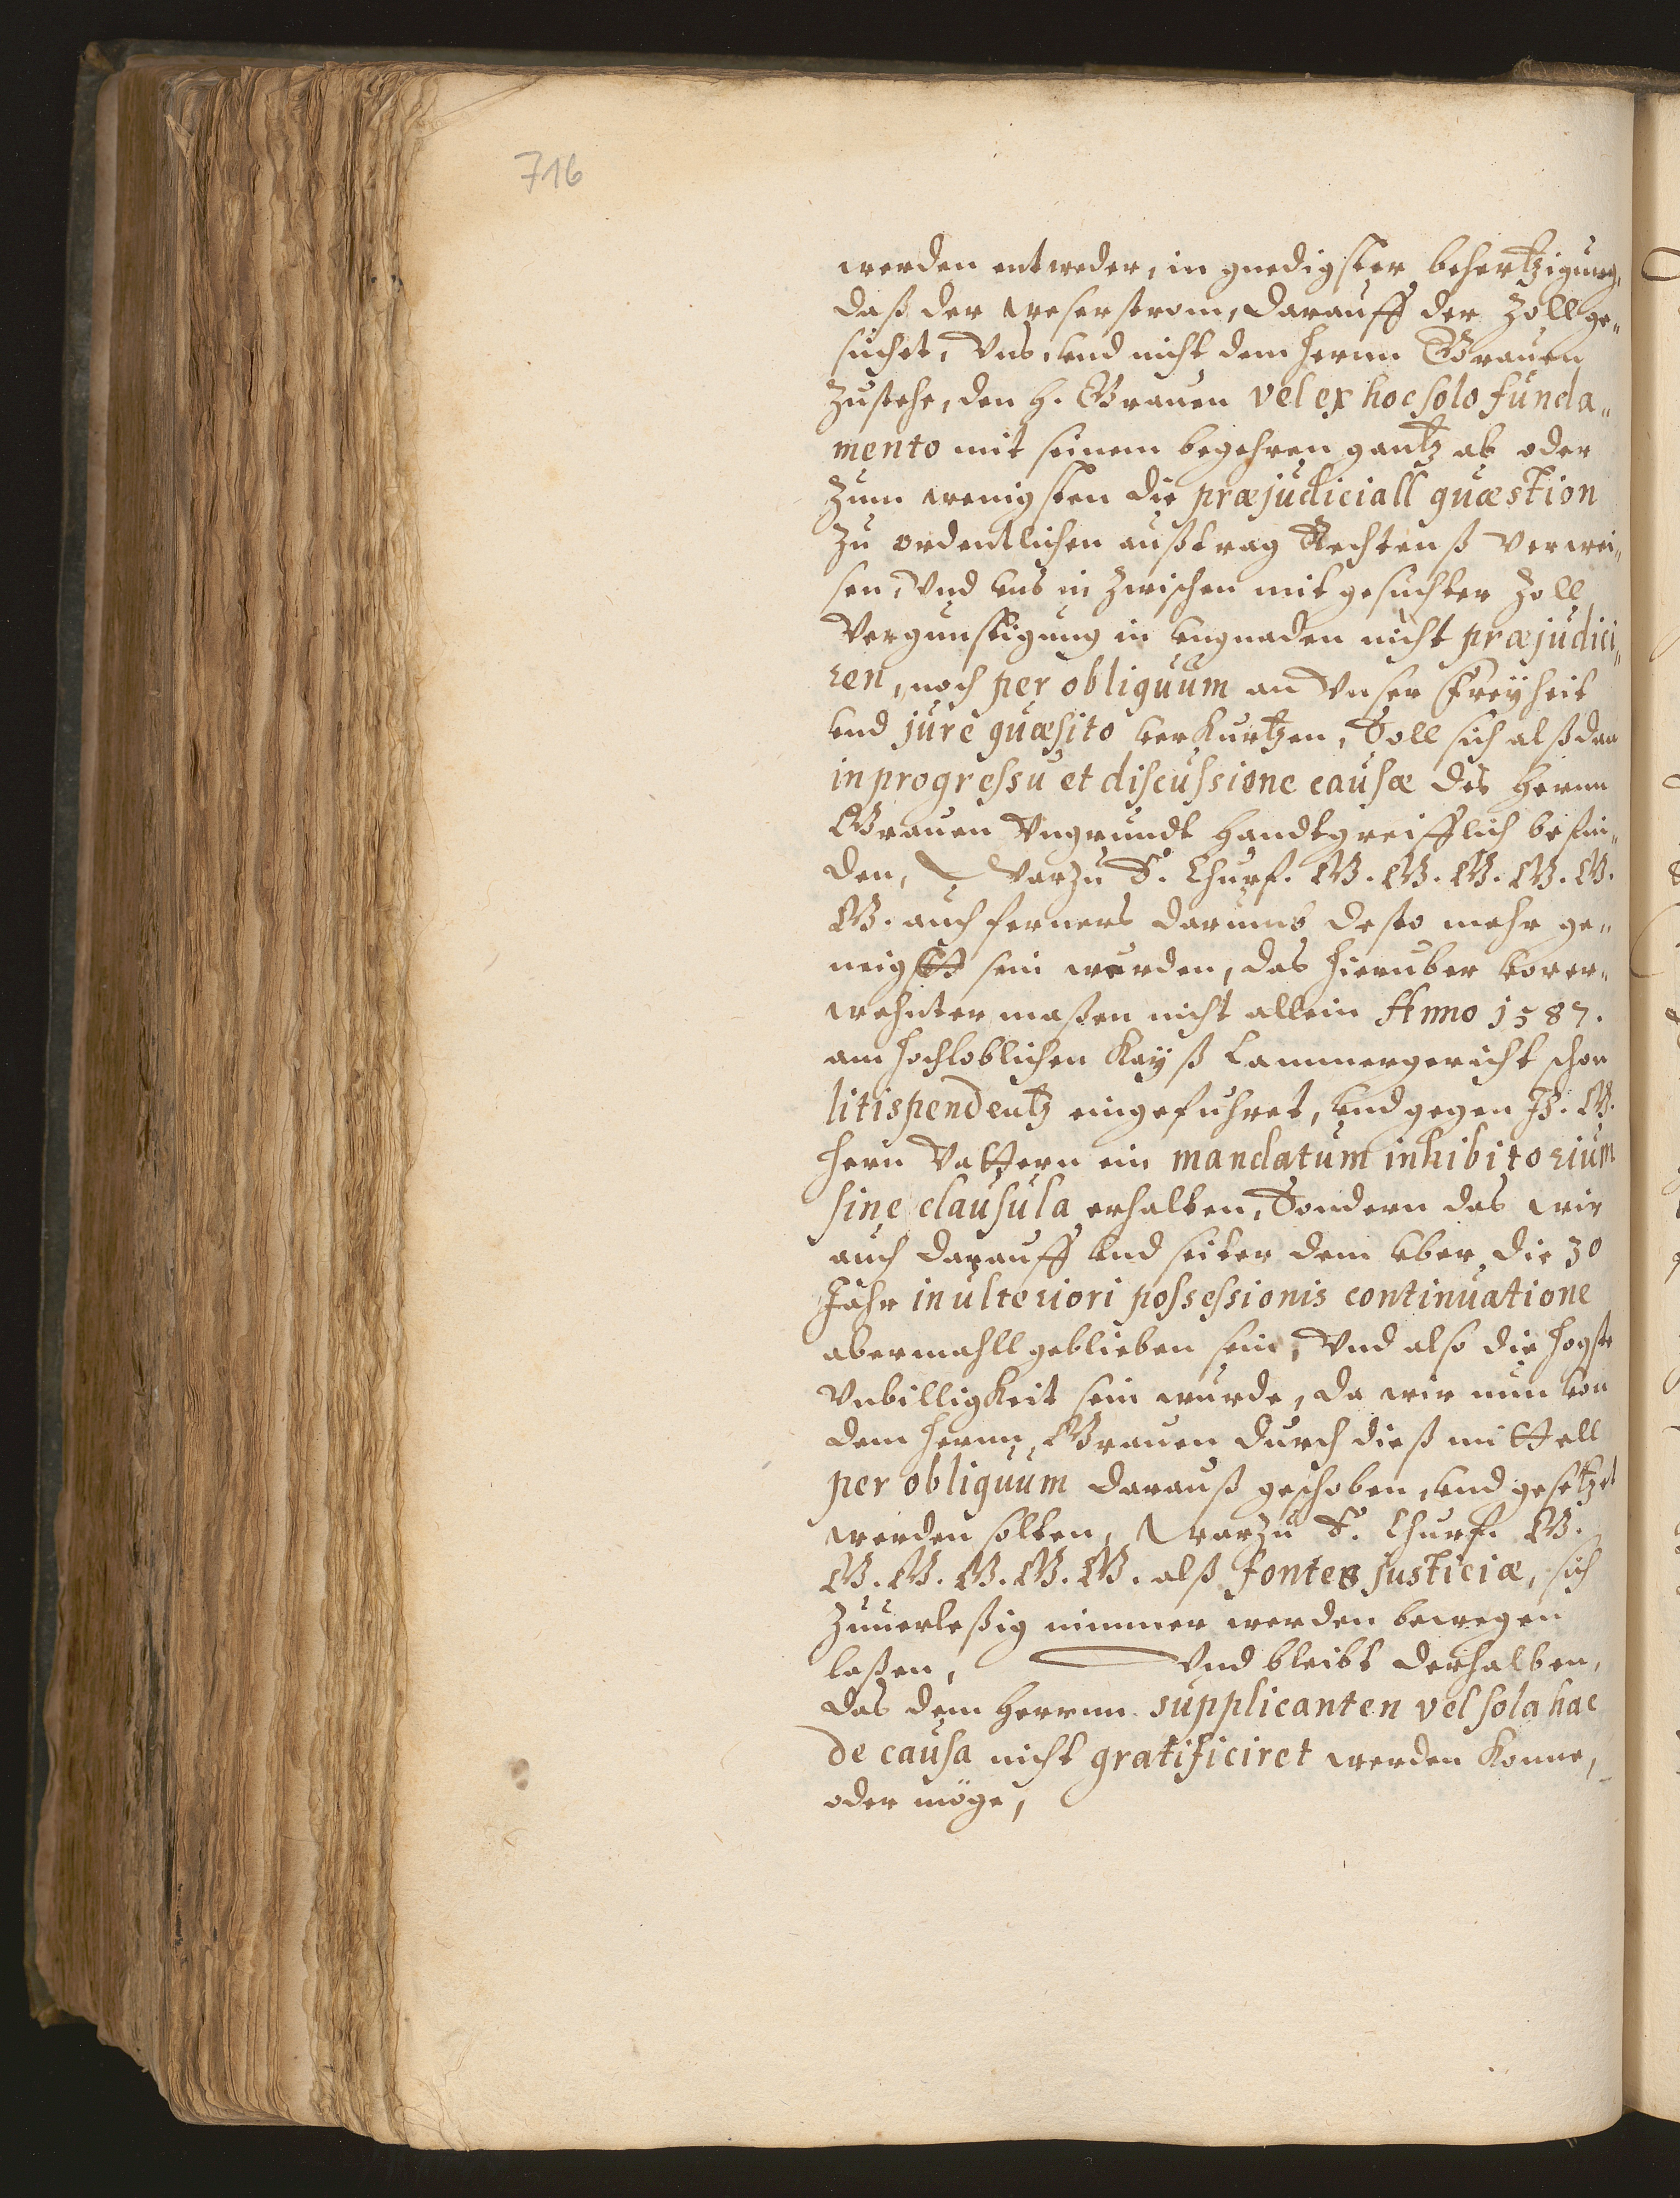 716
werden entweder, in gnedigster behertzigung,
daß der weserstrom, darauff der Zoll ge„
suchet, Vns, vnd nicht dem herrn Grauen
Zustehe, den H. Grauen vel ex hoc solo funda„
mento mit seinem begehren gantz ab oder
Zum wenigsten die præjudiciall quæstion
Zu ordentlichen außtrag Rechtenß verwei„
sen, Vnd vns in Zwischen mit gesuchter Zoll
Vergunstigung in vngnaden nicht præjudici„
ren, noch per obliquum an Vnser Freyheit
vnd jure quæsito verkurtzen, Soll sich alßdan
in progressu et discussione causæ des Herrn
Grauen Vngrundt handtgreifflich befin„
den, Warzu E. Churf. G. G. G. G. G.
G. auch ferners darumb desto mehr ge„
neigtt sein werden, das hieruber vorer„
wehnter maßen nicht allein Anno 1587.
am hochloblichen Kayß Cammergericht schon
litispendentz eingefuhret, vnd gegen J. G.
hern Vattern ein mandatum inhibitorium
sine clausula erhalten, Sondern das wir
auch darauff vnd seiter dem vber die 30
Jahr in ulteriori possessionis continuatione
abermahll geblieben sein, Vnd also die hogste
Vnbilligkeit sein wurde, da wir nun von
dem herrn Grauen durch dieß mittell
per obliquum darauß geschoben, vnd gesetzet
werden solten, Warzu E. Churf. G.
G. G. G. G. G. alß fontes justiciæ, sich
Zuuerleßig nimmer werden bewegen
laßen, Vnd bleibt derhalben,
das dem Herrnn supplicanten vel sola hac
de causa nicht gratificiret werden konne,
oder möge,